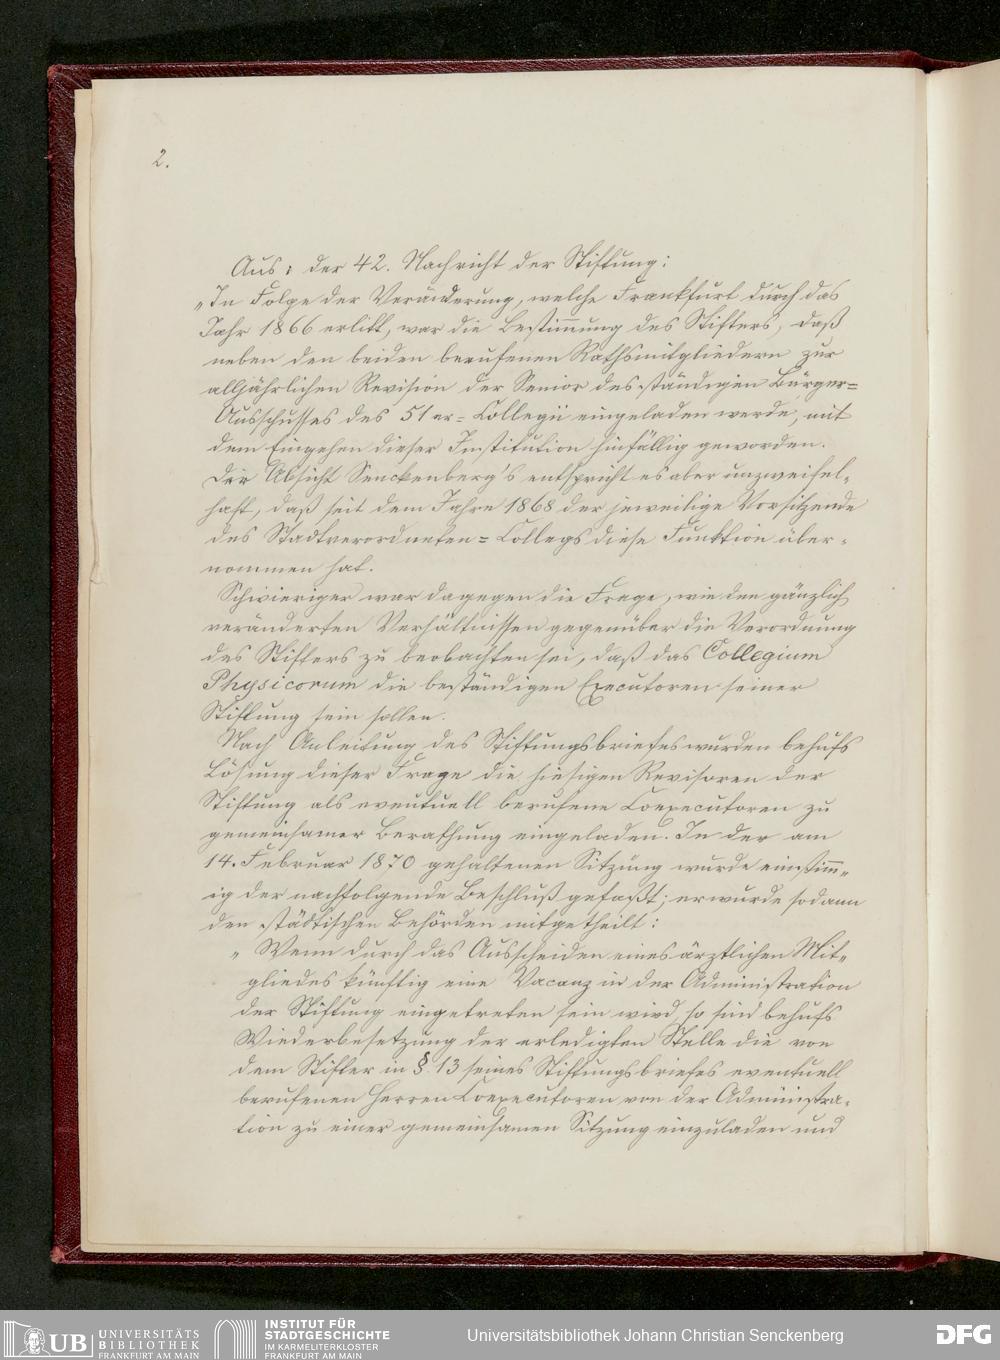 2.
Aus: der 42. Nachricht der Stiftung:
„In Folge der Veränderung, welche Frankfurt durch das
Jahr 1866 erlitt, war die Bestim̄ung des Stifters, daß
neben den beiden berufenen Rathsmitgliedern zur
alljährlichen Revision der Senior des ständigen Bürger=
Ausschusses des 51er=Collegii eingeladen werde, mit
dem Eingehen dieser Institution hinfällig geworden.
Der Absicht Senckenberg's entspricht es aber unzweifel-
haft, daß seit dem Jahre 1868 der jeweilige Vorsitzende
des Stadtverordneten=Collegs diese Funktion über-
nommen hat.
Schwieriger war dagegen die Frage, wie den gänzlich
veränderten Verhältnissen gegenüber die Verordnung
des Stifters zu beobachten sei, daß das Collegium
Physicorum die beständigen Executoren seiner
Stiftung sein sollen.
Nach Anleitung des Stiftungsbriefes wurden behufs
Lösung dieser Frage die hiesigen Revisoren der
Stiftung als eventuell berufene Coexecutoren zu
gemeinsamer Berathung eingeladen. In der am
14. Februar 1870 gehaltenen Sitzung wurde einstim̄-
ig der nachfolgende Beschluß gefaßt; er wurde sodann
den städtischen Behörden mitgetheilt:
„Wenn durch das Ausscheiden eines ärztlichen Mit-
gliedes künftig eine Vacanz in der Administration
der Stiftung eingetreten sein wird, so sind behufs
Wiederbesetzung der erledigten Stelle die von
dem Stifter in § 13 seines Stiftungsbriefes eventuell
berufenen Herren Coexecutoren von der Administra-
tion zu einer gemeinsamen Sitzung einzuladen und
UB UNIVERSITÄTS
BIBLIOTHEK
FRANKFURT AM MAIN
INSTITUT FÜR
STADTGESCHICHTE
IM KARMELITERKLOSTER
FRANKFURT AM MAIN
Universitätsbibliothek Johann Christian Senckenberg
DFG